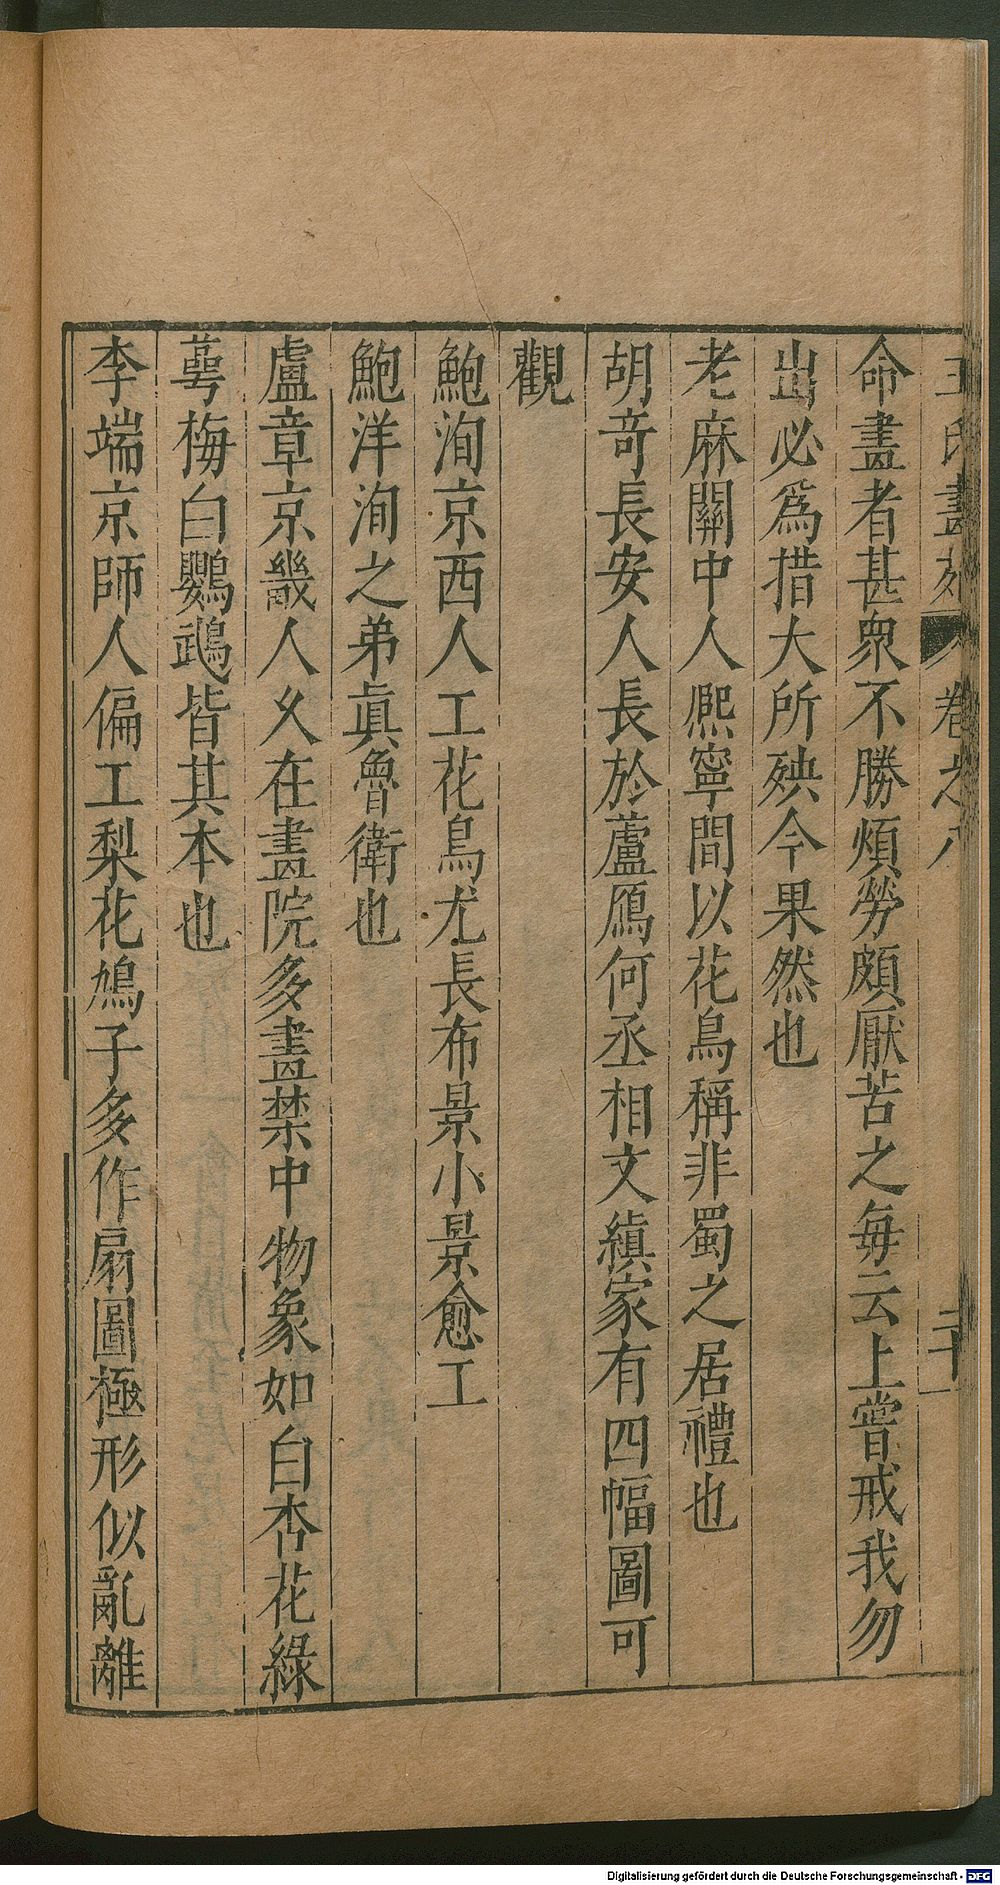 王氏畫苑 卷之八 二十一
命畫者甚衆不勝煩勞頗厭苦之每云上嘗戒我勿
出必爲措大所殃今果然也
老麻關中人熈寧間以花鳥稱非蜀之居禮也
胡竒長安人長於蘆鴈何丞相文縝家有四幅圖可
觀
鮑洵京西人工花鳥尤長布景小景愈工
鮑洋洵之弟眞魯衛也
盧章京畿人乆在畫院多畫禁中物象如白杏花綠
蕚梅白鸚鵡皆其本也
李端京師人偏工梨花鳩子多作扇圖極形似亂離
Digitalisierung gefördert durch die Deutsche Forschungsgemeinschaft - DFG